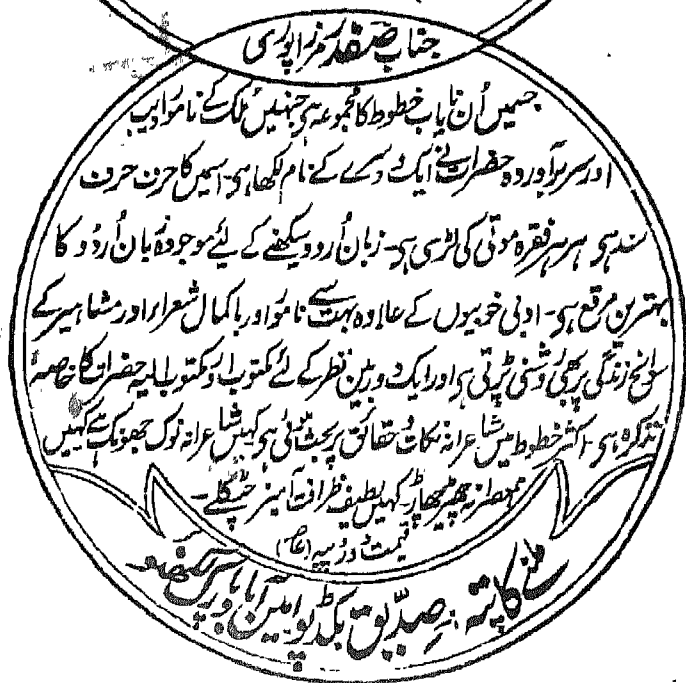 جناب صفدر مرزا پوری
جسمیں اُن نایاب خطوط کا مجموعہ ہی جنہیں ملک کے نامور ادیب
اور سربرآوردہ حضرات نے ایک دوسرے کے نام لکھا ہی۔ اسمیں کا حرف حرف
سند ہی ہر ہر فقرہ موتی کی لڑی ہی۔ زبان اُردو سیکھنے کے لیٔے موجودہ زبان اُردو کا
بہترین مرقع ہی۔ ادبی خوبیوں کے علاوہ بہت سے نامور اور باکمال شعراء اور مشاہیر کے
سوانح زندگی پر بھی روشنی پڑتی ہی اور ایک دوربین نظر کے لئے مکتوب اور مکتوب الیہ حضرات کا خاصہ
تذکرہ ہی۔ اکثر خطوط میں شاعرانہ نکات و حقائق پر بحث ہوئی ہی کہیں شاعرانہ نوک جھونک ہے کہیں
چھیڑ چھاڑ۔ کہیں لطیف ظرافت آمیز چٹکلے۔
قیمت دو روپیہ (عا)
ملنے کا پتہ :۔ صدیق بکڈپو امین آباد پارک لکھنؤ